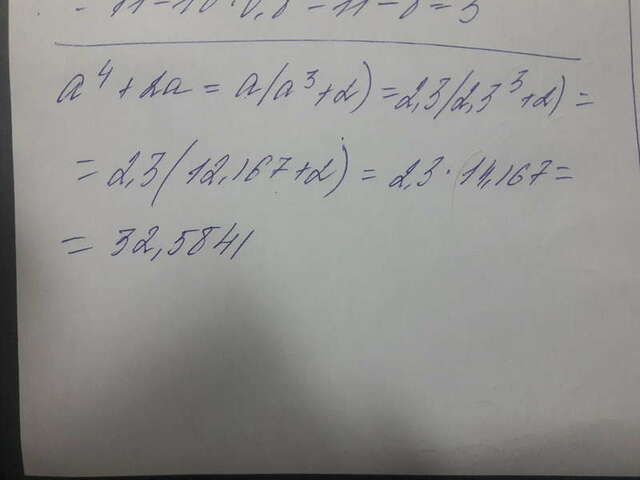 = 11 - 10 · 0,8 = 11 - 8 = 3
a⁴ + 2a = a(a³ + 2) = 2,3(2,3³ + 2) =
= 2,3(12,167 + 2) = 2,3 · 14,167 =
= 32,5841